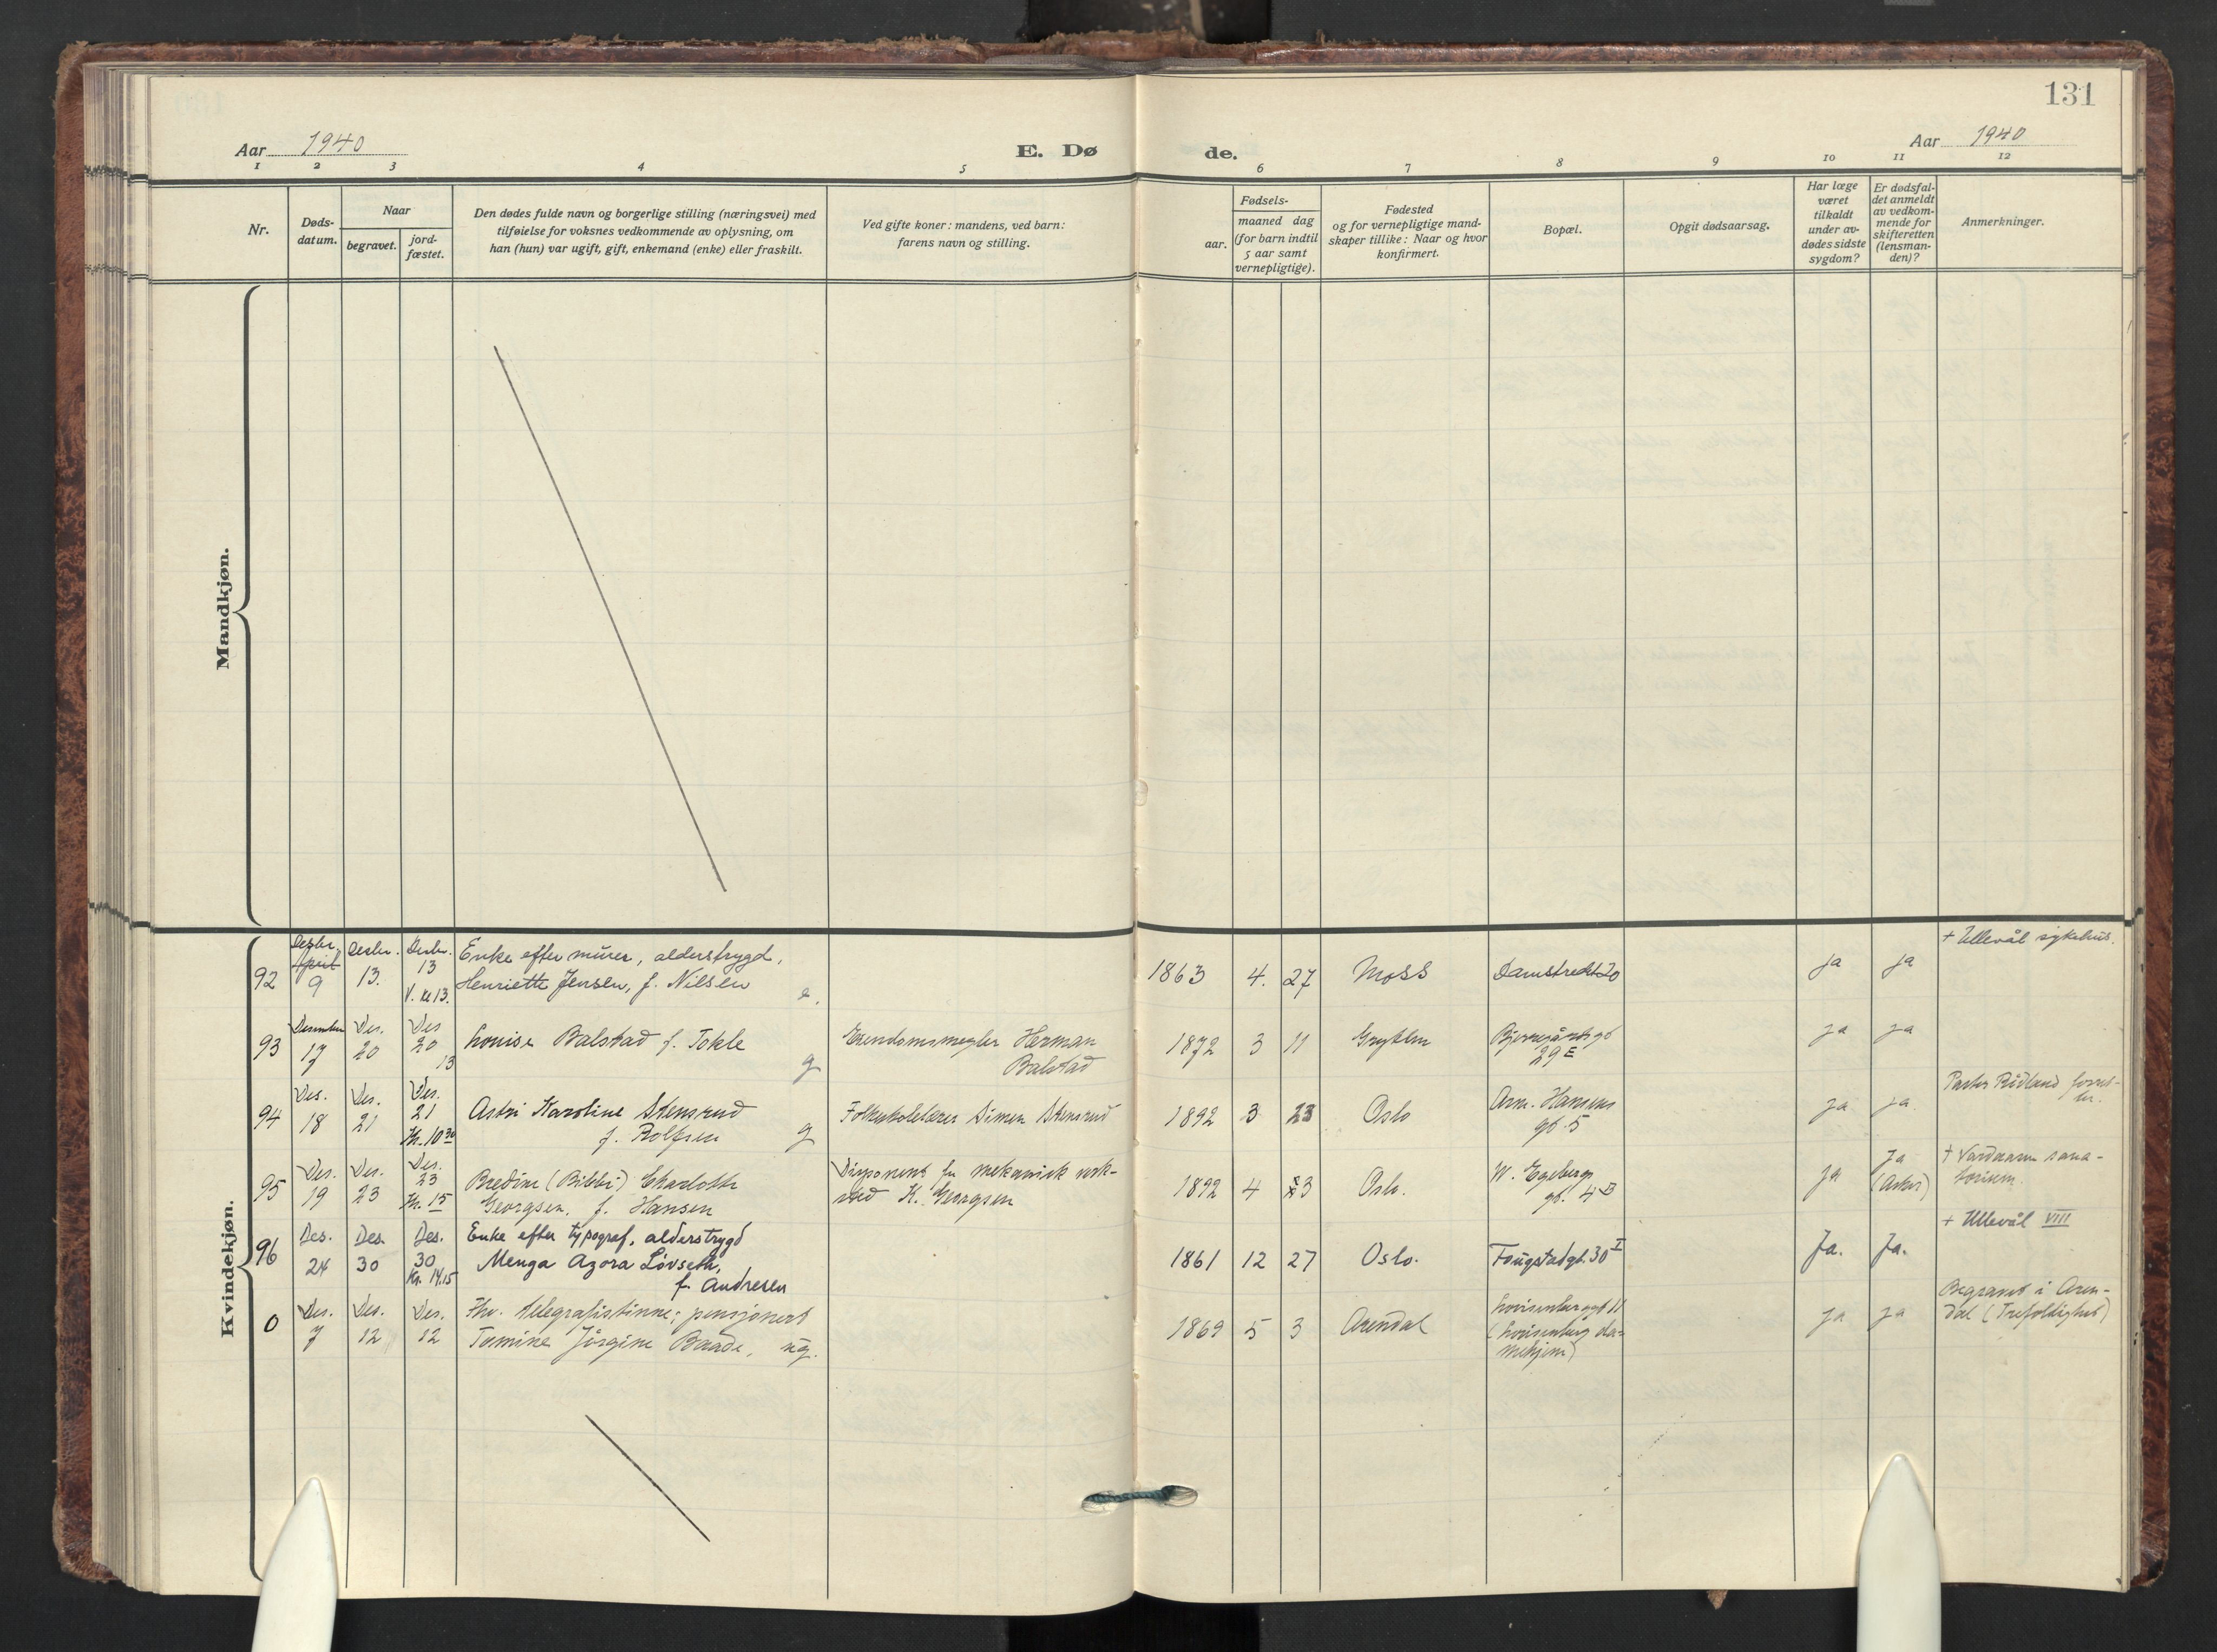 131
Aar 1940
E. Dø
de.
Aar 1940
1 2 3 4 5 6 7 8 9 10 11 12
Nr.
Døds-
datum.
Naar
begravet.
jord-
fæstet.
Den dødes fulde navn og borgerlige stilling (næringsvei) med
tilføielse for voksnes vedkommende av oplysning, om
han (hun) var ugift, gift, enkemand (enke) eller fraskilt.
Ved gifte koner: mandens, ved barn:
farens navn og stilling.
Fødsels-
aar.
maaned dag
(for barn indtil
5 aar samt
vernepligtige).
Fødested
og for vernepligtige mand-
skaper tillike: Naar og hvor
konfirmert.
Bopæl.
Opgit dødsaarsag.
Har læge
været
tilkaldt
under av-
dødes sidste
sygdom?
Er dødsfal-
det anmeldt
av vedkom-
mende for
skifteretten
(lensman-
den)?
Anmerkninger.
Mandkjøn.
Kvindekjøn.
92
Desbr.
April
9
Desbr.
13.
Desbr.
13
V. kl 13.
Enke efter murer, alderstrygd,
Henriette Jensen, f. Nilsen e.
1863 4. 27 Moss Damstredet 20 ja ja
+ Ullevål sykehus.
93
Desember
17
Des.
20
Des
20
13
Louise Balstad f. Tokle g
Eiendomsmegler Herman
Balstad
1872 3 11 Grytten
Bjerregårdsgt
29 E
ja ja
94
Des.
18
Des.
21
Des.
21
Kl. 10 30
Astri Karoline Stensrud
f. Rolfsen g
Folkeskolelærer Simen Stensrud
1892 3 23 Oslo
Arn. Hansens
gt. 5
ja ja
Pastor Ridland forret-
ter.
95
Des.
19
Des.
23
Des.
23
Kl. 15
Bredine (Bibbi) Charlotte
Georgsen, f. Hansen
Disponent for mekanisk verk-
sted K. Georgsen
1892 4 3 Oslo.
W. Egebergs
gt. 4 B
ja
Ja
(Asker)
+ Vardaasen sana-
torium.
96
Des.
24
Des
30
Des.
30
Kl. 14.15
Enke efter typograf, alderstrygd
Menga Azora Løvseth,
f. Andresen
1861 12 27 Oslo. Fougstadgt. 30 I Ja. Ja.
+ Ullevål VIII
0
Des.
7
Des.
12
Des.
12
Fhv. telegrafistinne, pensjonert
Tomine Jørgine Baade, ug.
1869 5 3 Arendal
Lovisenberggt 11
(Lovisenberg da-
mehjem)
ja ja
Begravet i Aren-
dal (Trefoldighet)